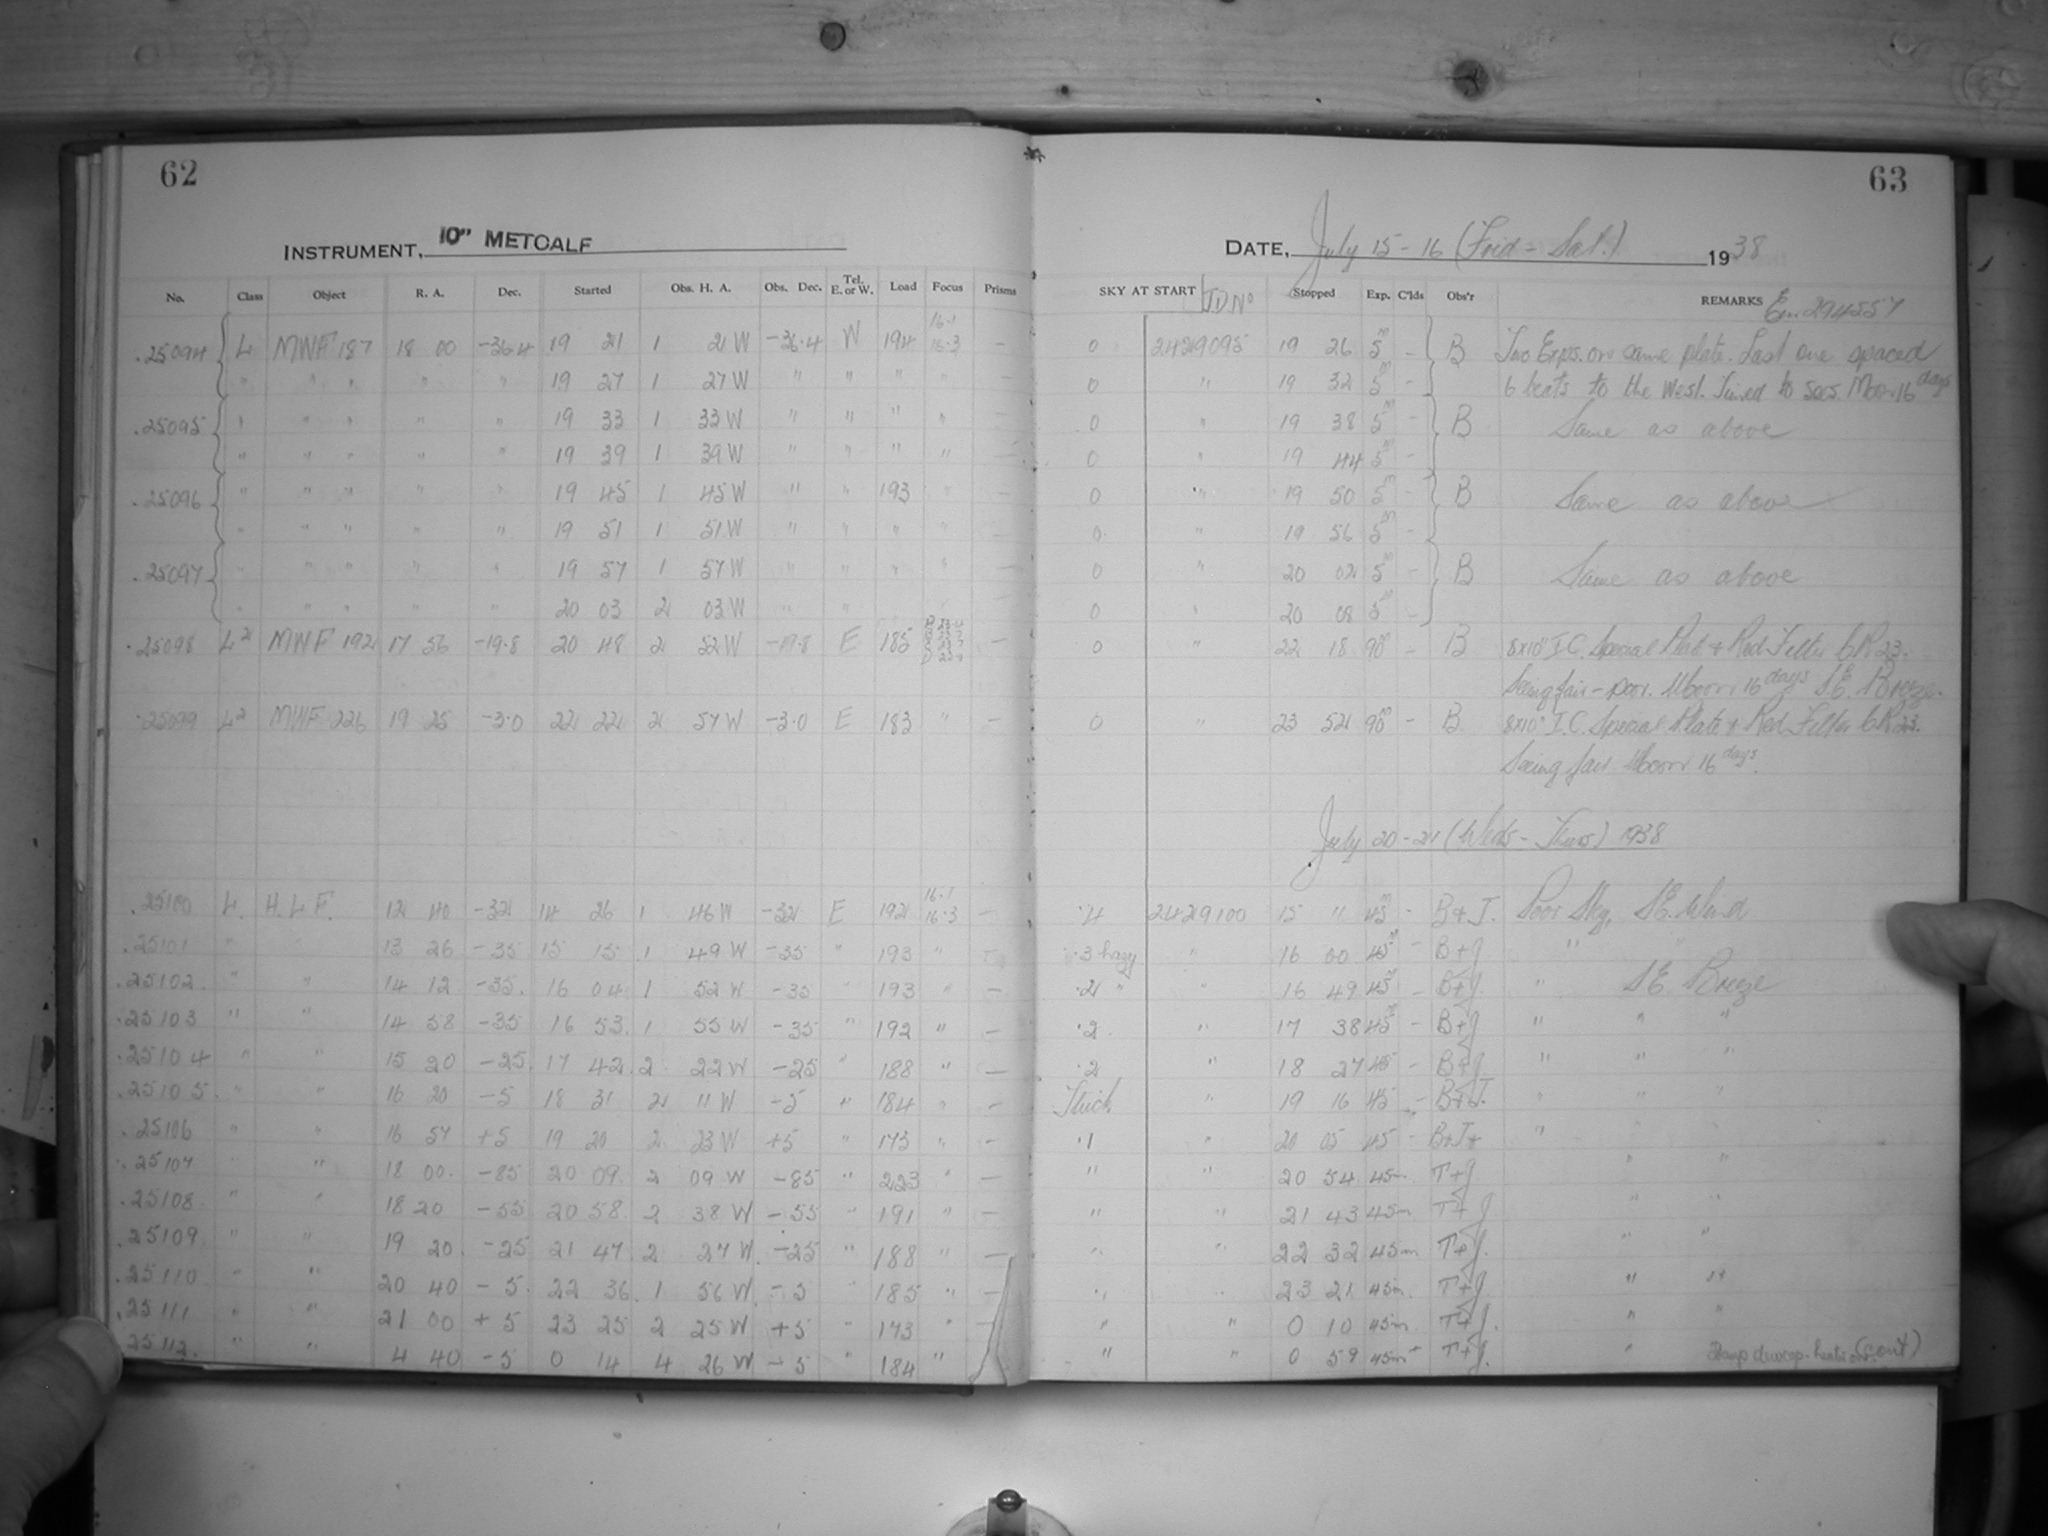 62
INSTRUMENT, 10" METCALF
No. Class Object R. A. Dec. Started Obs. H. A. Obs. Dec. Tel. E. or W. Load Focus Prisms
25094 L MWF 187 18 00 -36.4 19 21 1 21 W -36.4 W 194 16.1 16.3 –
" " " " " 19 27 1 27 W " " " " –
25095 " " " " " 19 33 1 33 W " " " " –
" " " " " 19 39 1 39 W " " " " –
25096 " " " " " 19 45 1 45 W " " 193 " –
" " " " " 19 51 1 51 W " " " " –
25097 " " " " " 19 57 1 57 W " " " " –
" " " " " 20 03 2 03 W " " "
25098 L2 MWF 192 17 56 -19.8 20 48 2 52 W -19.8 E 185 –
25099 L2 MWF 226 19 25 -3.0 22 22 2 57 W -3.0 E 183 " –
25100 L H.L.F. 12 40 -32 14 26 1 46 W -32 E 192 16.1 16.3 –
25101 " " 13 26 -35 15 15 1 49 W -35 " 193 " –
25102 " " 14 12 -35 16 04 1 52 W -35 " 193 " –
25103 " " 14 58 -35 16 53 1 55 W -35 " 192 " –
25104 " " 15 20 -25 17 42 2 22 W -25 " 188 " –
25105 " " 16 20 -5 18 31 2 11 W -5 " 184 " –
25106 " " 16 57 +5 19 20 2 23 W +5 " 173 " –
25107 " " 18 00 -85 20 09 2 09 W -85 " 223 " –
25108 " " 18 20 -55 20 58 2 38 W -55 " 191 " –
25109 " " 19 20 -25 21 47 2 27 W -25 " 188 " –
25110 " " 20 40 -5 22 36 1 56 W -5 " 185 " –
25111 " " 21 00 +5 23 25 2 25 W +5 " 173 " –
25112 " " 4 40 -5 0 14 4 26 W -5 " 184 "
63
DATE, July 15-16 (Frid - Sat.) 1938
SKY AT START JD No Stopped Exp. C'lds Obs'r REMARKS
0 2429095 19 26 5m – B Two Exps. on same plate. Last one spaced
0 " 19 32 5m – 6 beats to the West. Moon 16 days
0 " 19 38 5m – B Same as above
0 " 19 44 5m –
0 " 19 50 5m – B Same as above
0 " 19 56 5m –
0 " 20 02 5m – B Same as above
0 " 20 08 5m –
0 " 22 18 90m – B 8x10" I.C. Special Plate + Red Filter CR 23.
Seeing fair - poor. Moon 16 days S.E. Breeze.
0 " 23 52 90m – B 8x10" I.C. Special Plate + Red Filter CR 23.
Seeing fair Moon 16 days.
July 20-21 (Weds - Thurs) 1938
.4 2429100 15 11 45m – B+J. Poor Sky, S.E. Wind
.3 hazy " 16 00 45m – B+J "
.2 " " 16 49 45m – B+J. " S.E. Breeze
.2 " 17 38 45m – B+J " " "
.2 " 18 27 45 – B+J. " " "
Thick " 19 16 45 – B+J. " " "
.1 " 20 05 45 – B+J+ "
" " 20 54 45m T+J " "
" " 21 43 45m T+J " "
" " 22 32 45m T+J. " "
" " 23 21 45m. T+J " "
" " 0 10 45m T+J. " "
" " 0 59 45m+ T+J. " (cont)